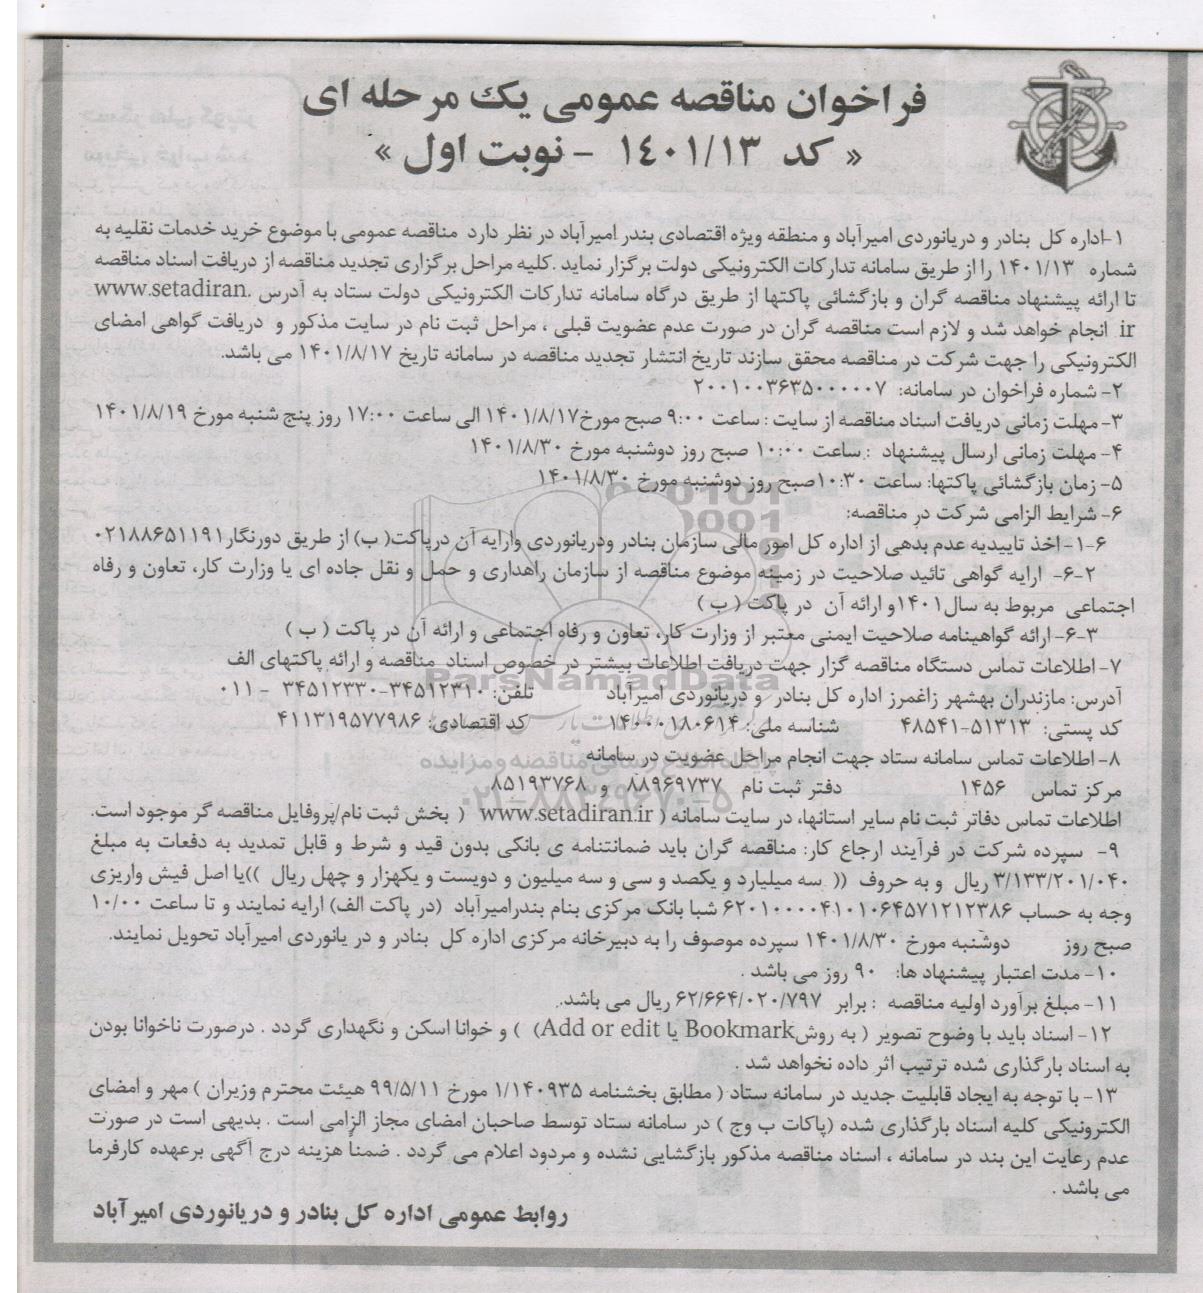 فراخوان مناقصه عمومی یک مرحله ای
« کد ۱۴۰۱/۱۳ - نوبت اول »
۱-اداره کل بنادر و دریانوردی امیرآباد و منطقه ویژه اقتصادی بندر امیرآباد در نظر دارد مناقصه عمومی با موضوع خرید خدمات نقلیه به
شماره ۱۴۰۱/۱۳ را از طریق سامانه تدارکات الکترونیکی دولت برگزار نماید .کلیه مراحل برگزاری تجدید مناقصه از دریافت اسناد مناقصه
تا ارائه پیشنهاد مناقصه گران و بازگشائی پاکتها از طریق درگاه سامانه تدارکات الکترونیکی دولت ستاد به آدرس www.setadiran.
ir انجام خواهد شد و لازم است مناقصه گران در صورت عدم عضویت قبلی ، مراحل ثبت نام در سایت مذکور و دریافت گواهی امضای
الکترونیکی را جهت شرکت در مناقصه محقق سازند تاریخ انتشار تجدید مناقصه در سامانه تاریخ ۱۴۰۱/۸/۱۷ می باشد.
۲- شماره فراخوان در سامانه: ۲۰۰۱۰۰۳۶۳۵۰۰۰۰۰۷
۳- مهلت زمانی دریافت اسناد مناقصه از سایت : ساعت ۹:۰۰ صبح مورخ۱۴۰۱/۸/۱۷ الی ساعت ۱۷:۰۰ روز پنج شنبه مورخ ۱۴۰۱/۸/۱۹
۴- مهلت زمانی ارسال پیشنهاد : ساعت ۱۰:۰۰ صبح روز دوشنبه مورخ ۱۴۰۱/۸/۳۰
۵- زمان بازگشائی پاکتها: ساعت ۱۰:۳۰صبح روز دوشنبه مورخ ۱۴۰۱/۸/۳۰
۶- شرایط الزامی شرکت در مناقصه:
۶-۱- اخذ تاییدیه عدم بدهی از اداره کل امور مالی سازمان بنادر ودریانوردی وارایه آن درپاکت( ب) از طریق دورنگار۰۲۱۸۸۶۵۱۱۹۱
۶-۲- ارایه گواهی تائید صلاحیت در زمینه موضوع مناقصه از سازمان راهداری و حمل و نقل جاده ای یا وزارت کار، تعاون و رفاه
اجتماعی مربوط به سال۱۴۰۱و ارائه آن در پاکت ( ب )
۶-۳- ارائه گواهینامه صلاحیت ایمنی معتبر از وزارت کار، تعاون و رفاه اجتماعی و ارائه آن در پاکت ( ب )
۷- اطلاعات تماس دستگاه مناقصه گزار جهت دریافت اطلاعات بیشتر در خصوص اسناد مناقصه و ارائه پاکتهای الف
آدرس: مازندران بهشهر زاغمرز اداره کل بنادر و دریانوردی امیرآباد تلفن: ۳۴۵۱۲۳۱۰-۳۴۵۱۲۳۳۰ - ۰۱۱
کد پستی: ۵۱۳۱۳-۴۸۵۴۱ شناسه ملی: ۱۴۰۰۰۱۸۰۶۱۴ کد اقتصادی: ۴۱۱۳۱۹۵۷۷۹۸۶
۸- اطلاعات تماس سامانه ستاد جهت انجام مراحل عضویت در سامانه
مرکز تماس ۱۴۵۶ دفتر ثبت نام ۸۸۹۶۹۷۳۷ و ۸۵۱۹۳۷۶۸
اطلاعات تماس دفاتر ثبت نام سایر استانها، در سایت سامانه ( www.setadiran.ir ( بخش ثبت نام/پروفایل مناقصه گر موجود است.
۹- سپرده شرکت در فرآیند ارجاع کار: مناقصه گران باید ضمانتنامه ی بانکی بدون قید و شرط و قابل تمدید به دفعات به مبلغ
۳/۱۳۳/۲۰۱/۰۴۰ ریال و به حروف (( سه میلیارد و یکصد و سی و سه میلیون و دویست و یکهزار و چهل ریال ))یا اصل فیش واریزی
وجه به حساب ۶۲۰۱۰۰۰۰۴۱۰۱۰۶۴۵۷۱۲۱۲۳۸۶ شبا بانک مرکزی بنام بندرامیرآباد (در پاکت الف) ارایه نمایند و تا ساعت ۱۰/۰۰
صبح روز دوشنبه مورخ ۱۴۰۱/۸/۳۰ سپرده موصوف را به دبیرخانه مرکزی اداره کل بنادر و در یانوردی امیرآباد تحویل نمایند.
۱۰- مدت اعتبار پیشنهاد ها: ۹۰ روز می باشد .
۱۱- مبلغ برآورد اولیه مناقصه : برابر ۶۲/۶۶۴/۰۲۰/۷۹۷ ریال می باشد.
۱۲- اسناد باید با وضوح تصویر ( به روشBookmark یا Add or edit) ) و خوانا اسکن و نگهداری گردد . درصورت ناخوانا بودن
به اسناد بارگذاری شده ترتیب اثر داده نخواهد شد .
۱۳- با توجه به ایجاد قابلیت جدید در سامانه ستاد ( مطابق بخشنامه ۱/۱۴۰۹۳۵ مورخ ۹۹/۵/۱۱ هیئت محترم وزیران ) مهر و امضای
الکترونیکی کلیه اسناد بارگذاری شده (پاکات ب وج ) در سامانه ستاد توسط صاحبان امضای مجاز الزامی است . بدیهی است در صورت
عدم رعایت این بند در سامانه ، اسناد مناقصه مذکور بازگشایی نشده و مردود اعلام می گردد . ضمناً هزینه درج آگهی برعهده کارفرما
می باشد .
روابط عمومی اداره کل بنادر و دریانوردی امیرآباد
ParsNamadData
۰۲۱-۸۸۳۴۹۶۷۰-۵